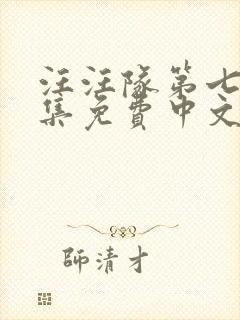 汪汪隊第七
集免費中文
師清才